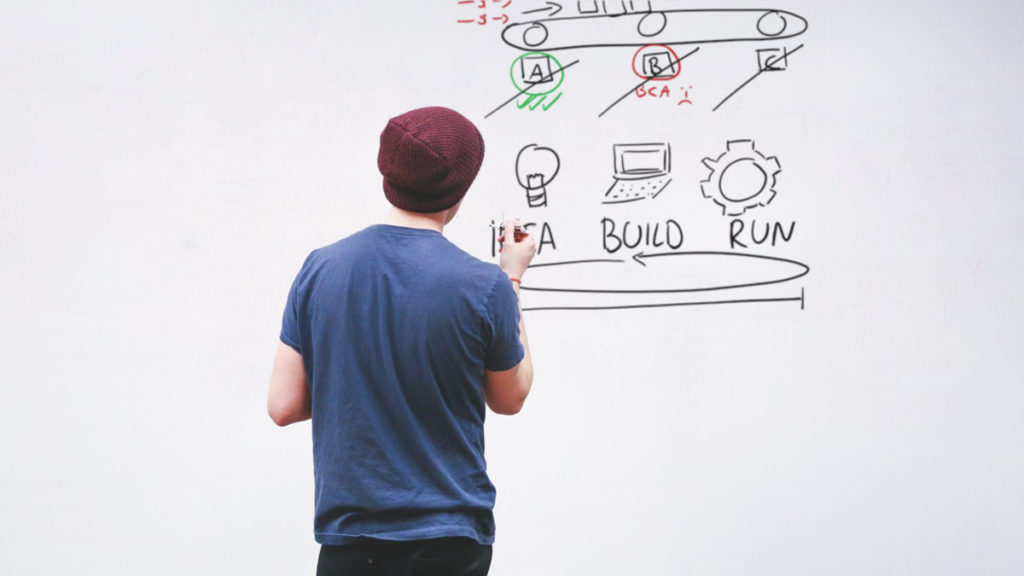 A B C
BCA
BUILD RUN